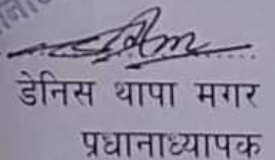 डेनिस थापा मगर
प्रधानाध्यापक